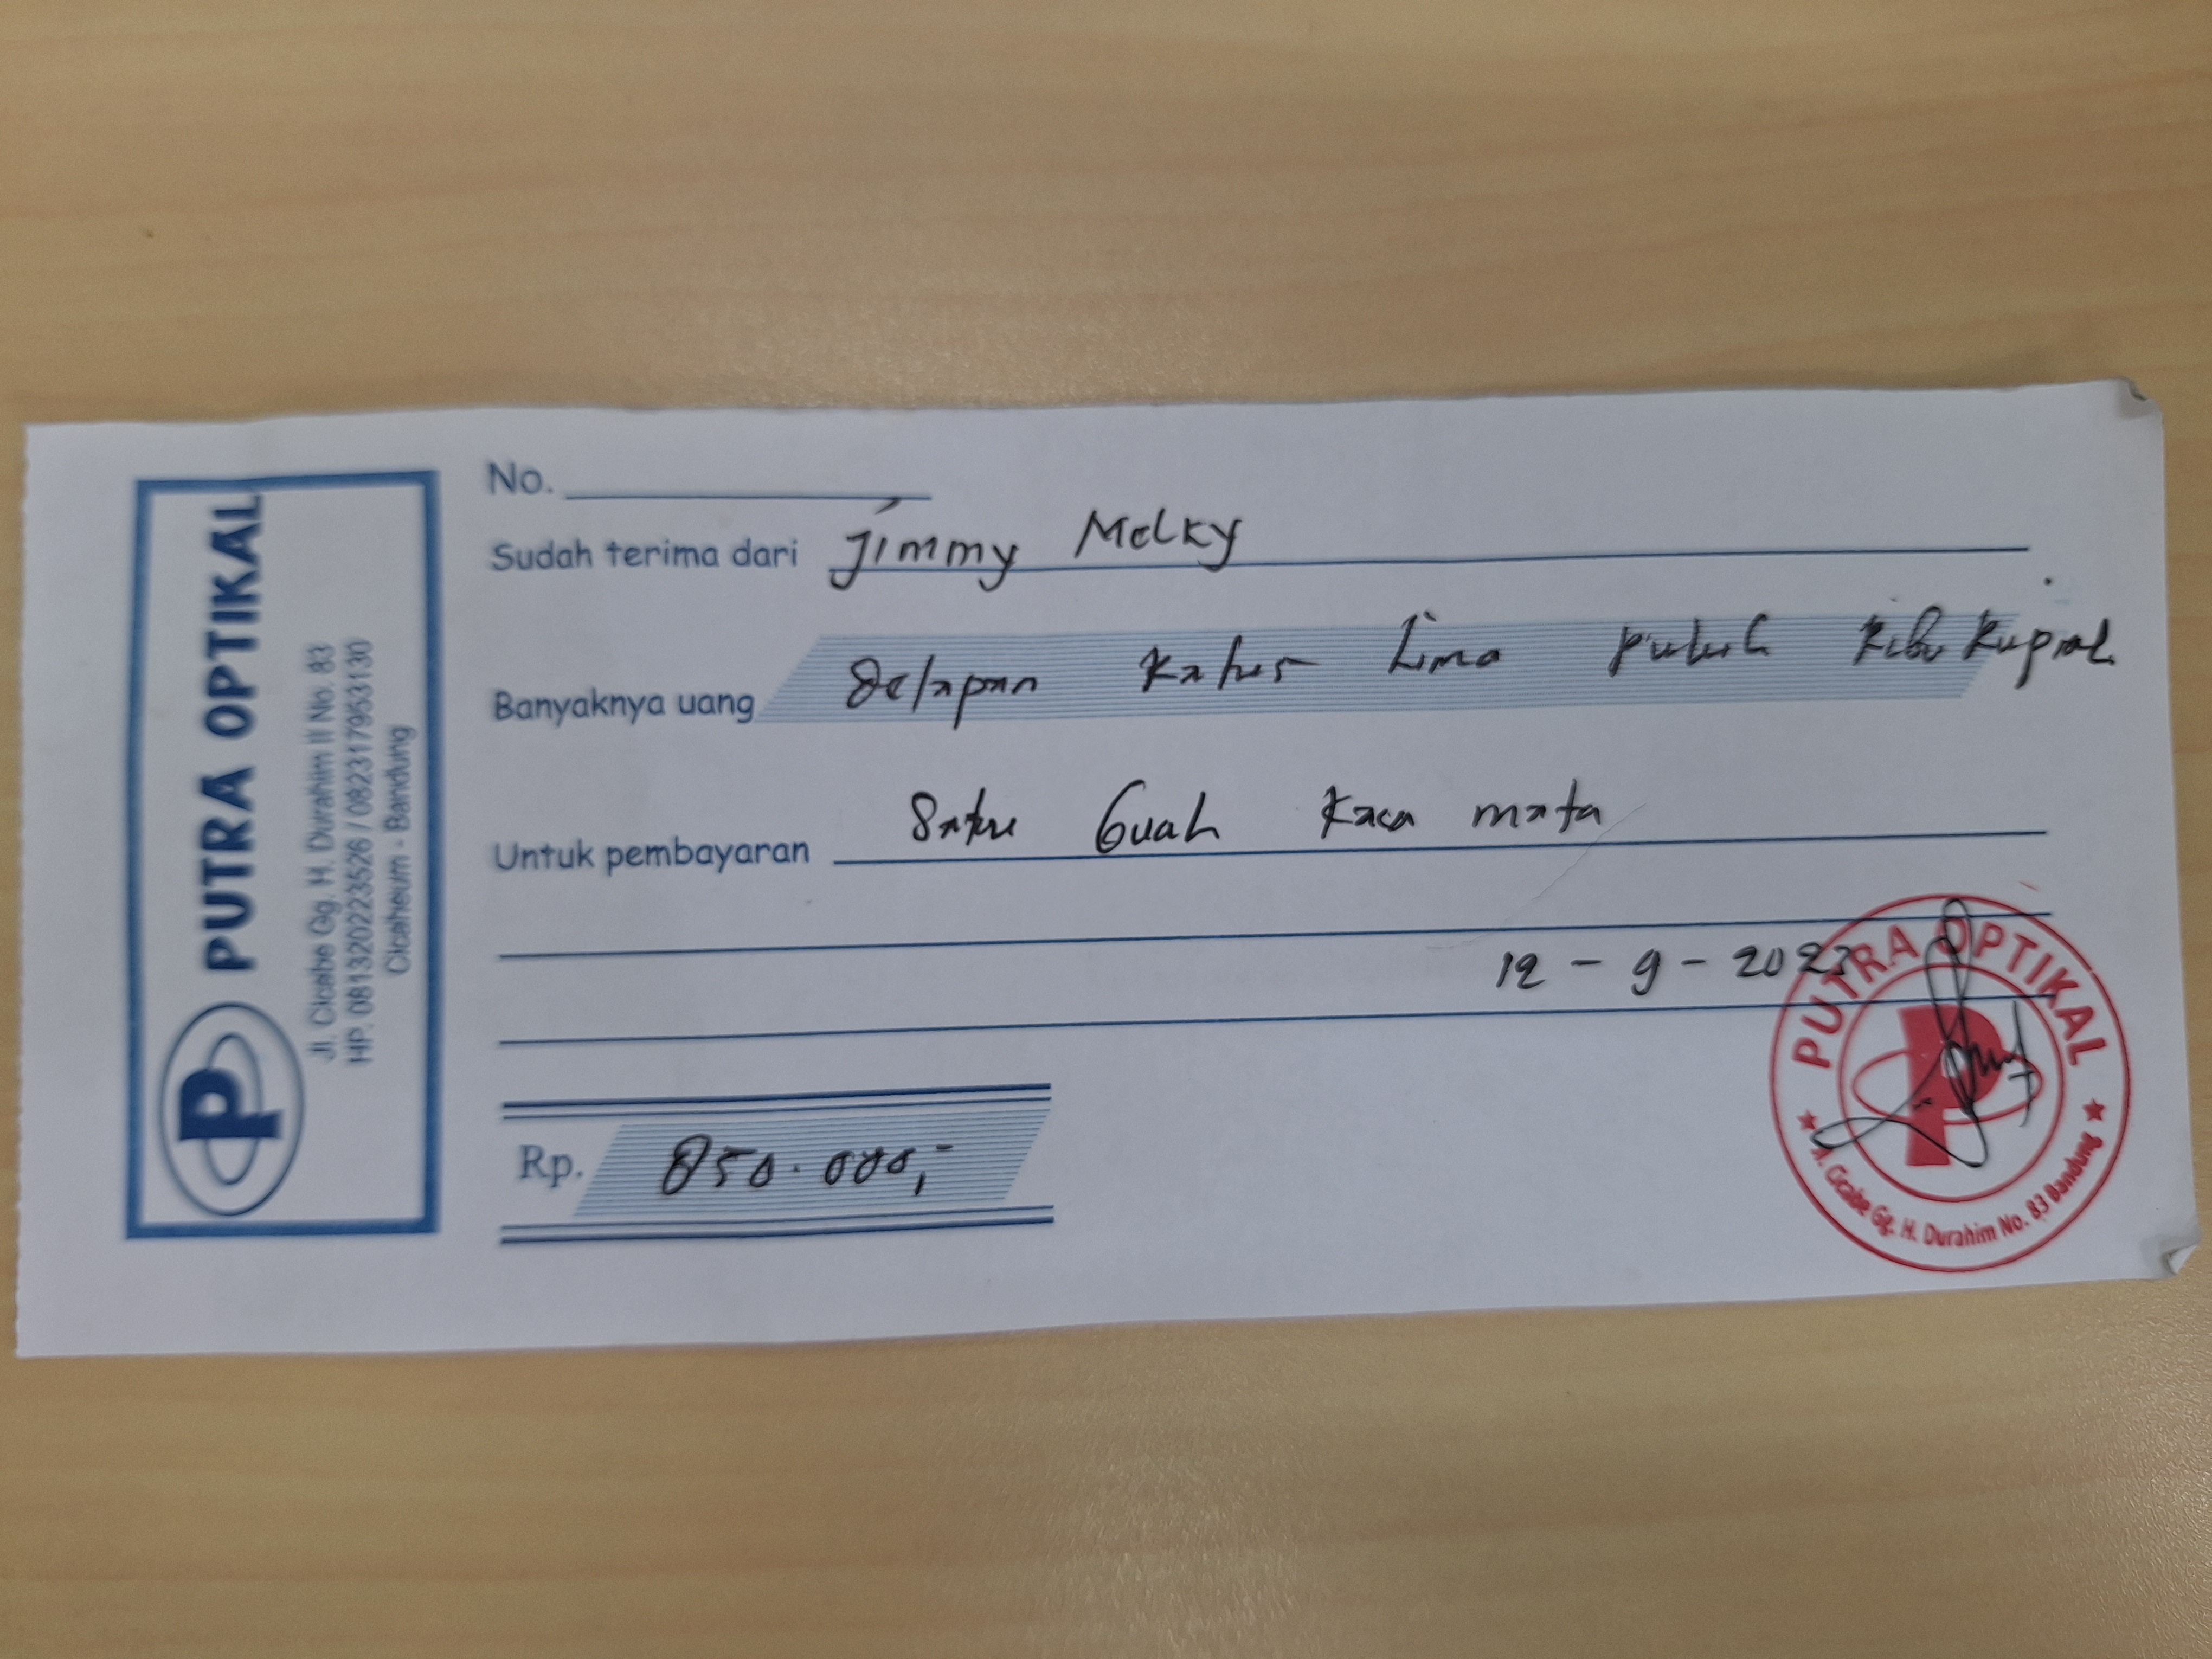 P PUTRA OPTIKAL
Jl. Cicabe Gg. H. Durahim II No. 83
HP. 081320223526 / 082317953130
Cicaheum - Bandung
No.
Sudah terima dari Jimmy Melky
Banyaknya uang Delapan Ratus Lima puluh Ribu Rupiah
Untuk pembayaran Satu buah Kaca mata
12 - 9 - 202
Rp. 850.000,-
PUTRA OPTIKAL
Cicabe Gg. H. Durahim No. 83 Bandung
P